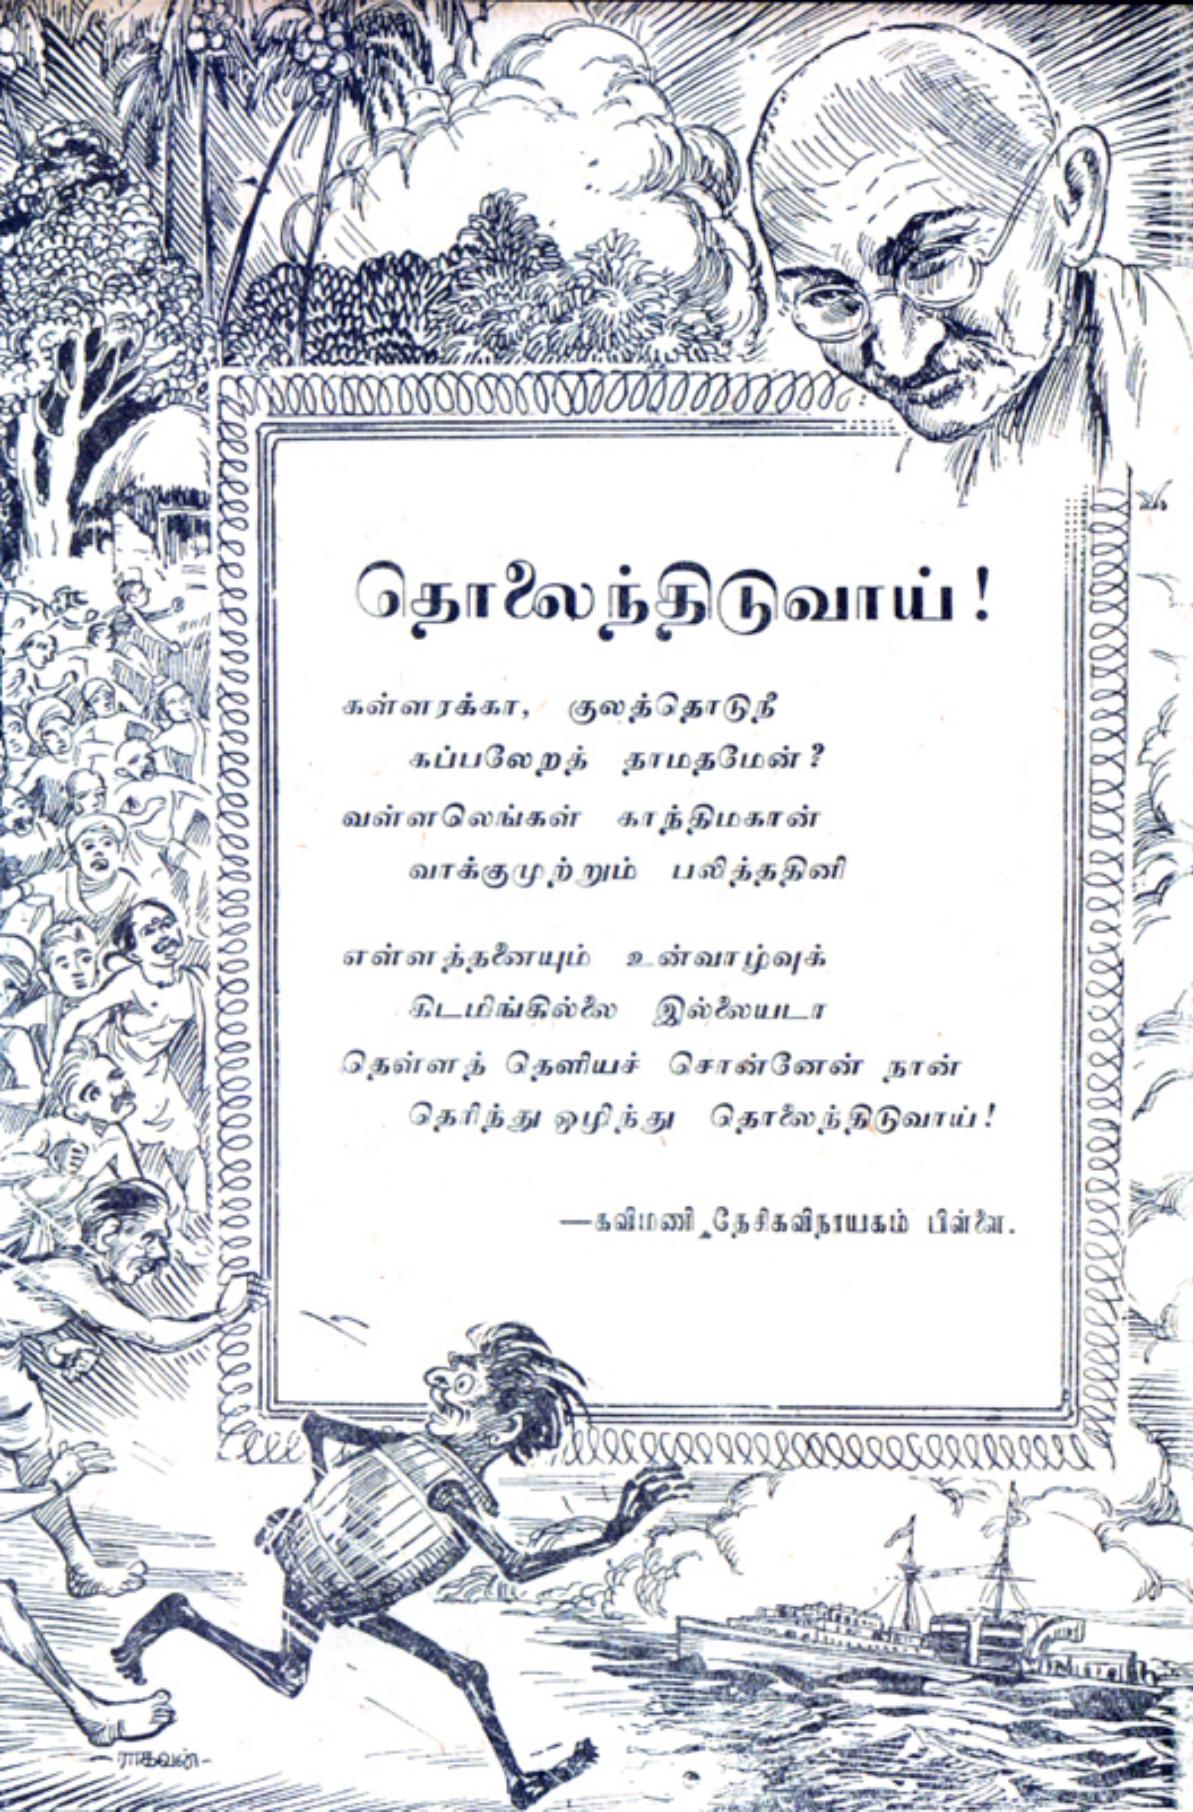 தொலைந்திடுவாய் !
கள்ளரக்கா, குலத்தொடுநீ
கப்பலேறத் தாமதமேன் ?
வள்ளலெங்கள் காந்திமகான்
வாக்குமுற்றும் பலித்ததினி
எள்ளத்தனையும் உன்வாழ்வுக்
கிடமிங்கில்லை இல்லையடா
தெள்ளத் தெளியச் சொன்னேன் நான்
தெரிந்து ஒழிந்து தொலைந்திடுவாய் !
—கவிமணி தேசிகவிநாயகம் பிள்ளை.
–ராகவன்–